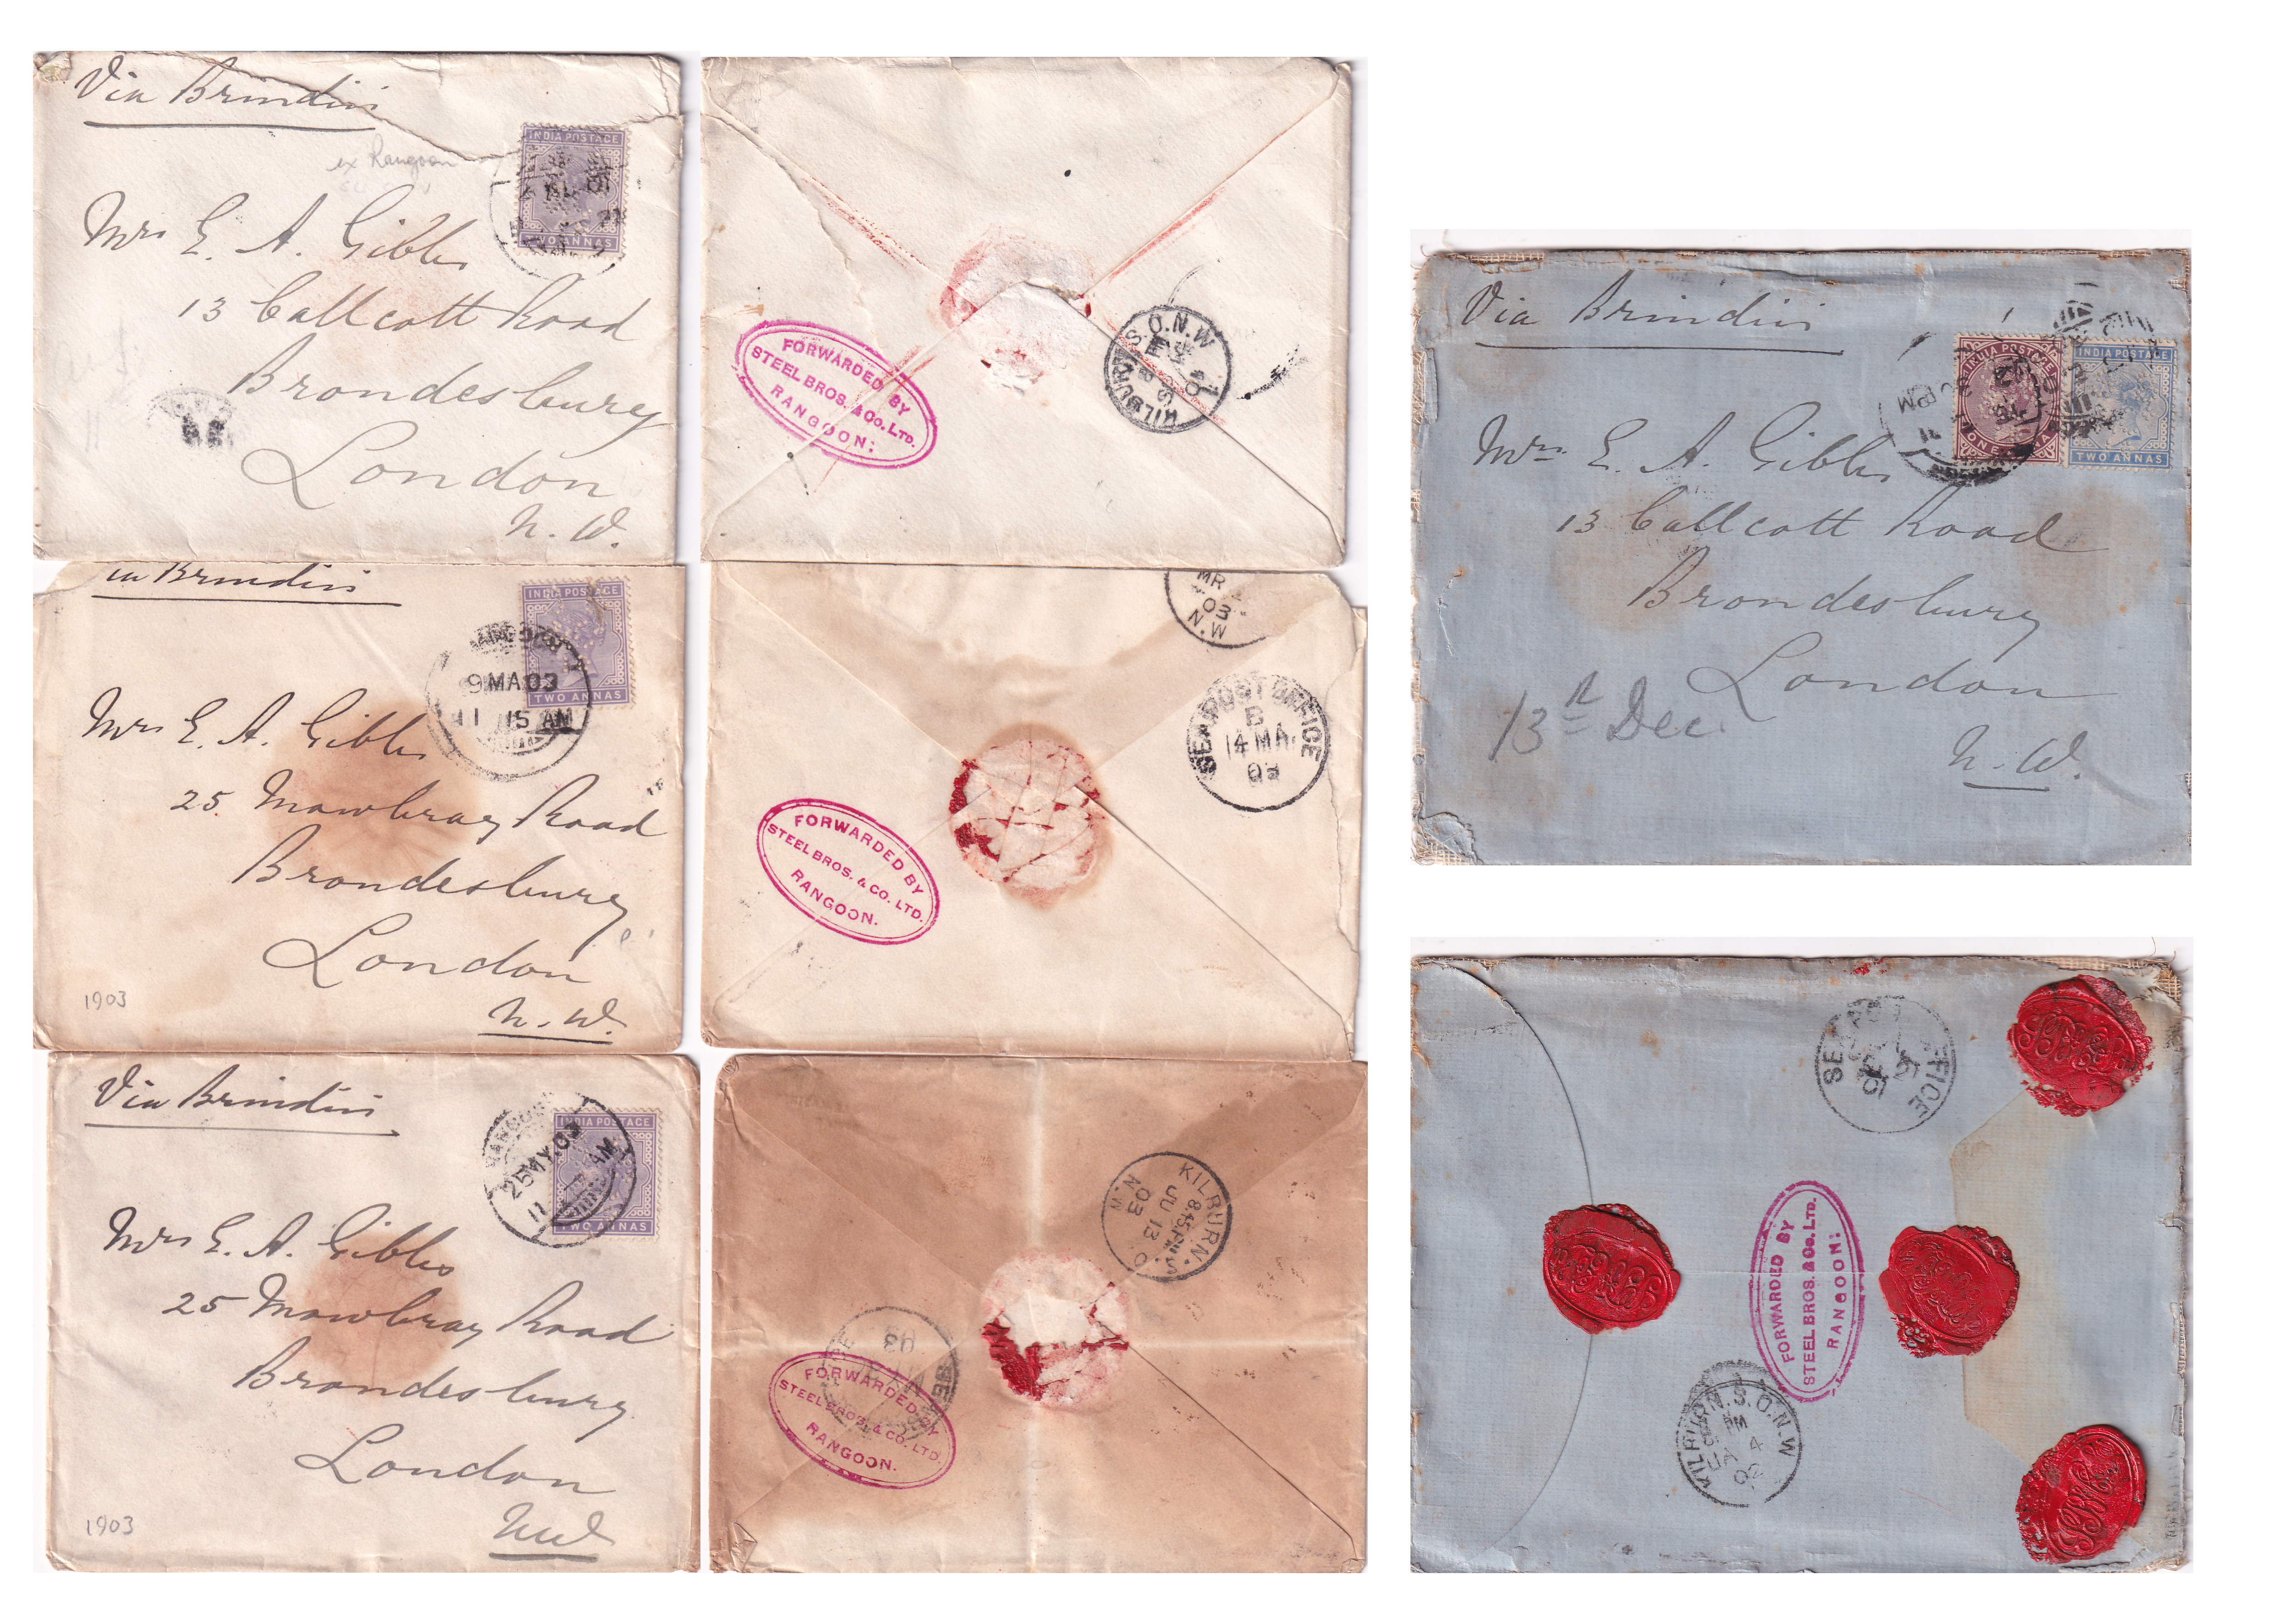 Via Brindisi
ex Rangoon
INDIA POSTAGE
TWO ANNAS
Mrs E. A. Gibbs
13 Callcott Road
Brondesbury
London
N. W.
FORWARDED BY
STEEL BROS. & Co. LTD.
RANGOON:
KILBURN S.O.N.W
via Brindisi
INDIA POSTAGE
TWO ANNAS
RANGOON
9 MA 03
11 15 AM
Mrs E. A. Gibbs
25 Mowbray Road
Brondesbury
London
N. W.
1903
MR
03
N.W
SEA POST OFFICE
B
14 MA
03
FORWARDED BY
STEEL BROS. & CO. LTD.
RANGOON.
Via Brindisi
RANGOON
25 MY 03
11 AM
INDIA POSTAGE
TWO ANNAS
Mrs E. A. Gibbs
25 Mowbray Road
Brondesbury
London
NW
1903
KILBURN. S.O.
8.45 PM
JU 13
03
N.W
03
FORWARDED BY
STEEL BROS. & CO. LTD.
RANGOON.
Via Brindisi
INDIA POSTAGE
ONE
INDIA POSTAGE
TWO ANNAS
PM
Mrs E. A. Gibbs
13 Callcott Road
Brondesbury
London
N. W.
13th Dec.
SEA POST OFFICE
01
FORWARDED BY
STEEL BROS. & Co. LTD.
RANGOON:
KILBURN. S.O.N.W
PM
JA 4
02